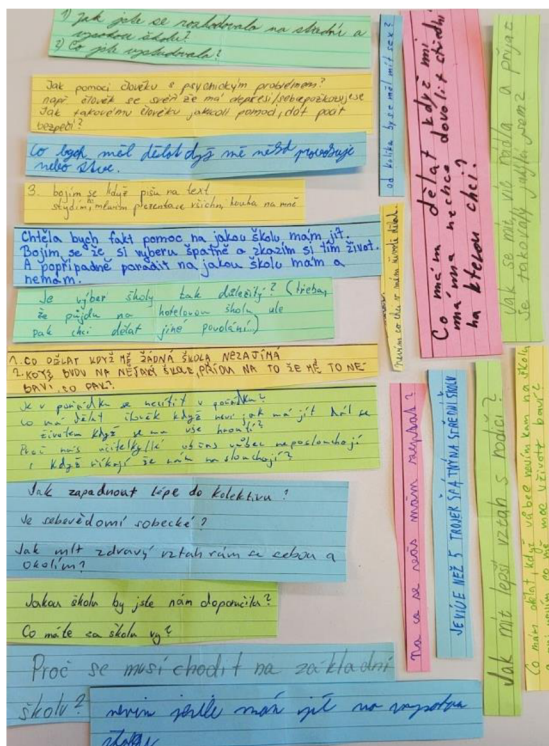 1) Jak jste se rozhodovala na střední a
vysokou školu?
2) Co jste vystudovala?
Jak pomoci člověku s psychickým problémem?
např. člověk se svěří že má depresi/sebepoškozuje se
Jak takovému člověku jakkoli pomoci, dát pocit
bezpečí?
Co bych měl dělat když mě někdo provokuje
nebo štve.
3. bojím se když píšu na text
stydím, mluvím prezentace všichni kouka na mně
Chtěla bych fakt pomoc na jakou školu mám jít.
Bojím se že si vyberu špatně a zkazím si tím život.
A popřípadně poradit na jakou školu mám a
nemám.
Je výběr školy tak důležitý? (třeba,
že půjdu na hotelovou školu, ale
pak chci dělat jiné povolání)
1. CO DĚLAT KDYŽ MĚ ŽÁDNÁ ŠKOLA NEZAJÍMÁ
2. KDYŽ BUDU NA NĚJAKÉ ŠKOLE, PŘIJDU NA TO ŽE MĚ TO NE
BAVÍ, CO PAK?
Je v pořádku se necítit v pořádku?
Co má dělat člověk když neví jak má jít dál se
životem když se mu vše hroutí?
Proč nás učitelé/lky vůbec neposlouchají
i když říkají že nám naslouchají?
Jak zapadnout lépe do kolektivu?
Je sebevědomí sobecké?
Jak mít zdravý vztah sám se sebou a
okolím?
Jakou školu by jste nám doporučila?
Co máte za školu vy?
Proč se musí chodit na základní
školu?
nevím jestli mám jít na
od kolika by se měl mít sex?
Nevím co chci v mém životě dělat.
Co mám dělat když mi
máma nechce dovolit střední
na kterou chci?
Jak se mít víc ráda a přijat
se takovou jaká jsem?
Na co se vás mám zeptat?
JE VÍCE NEŽ 5 TROJEK ŠPATNÝ NA STŘEDNÍ ŠKOLU
Jak mít lepší vztah s rodiči?
Co mám dělat, když vůbec nevím kam na školu
a nevím co mě moc v životě baví?